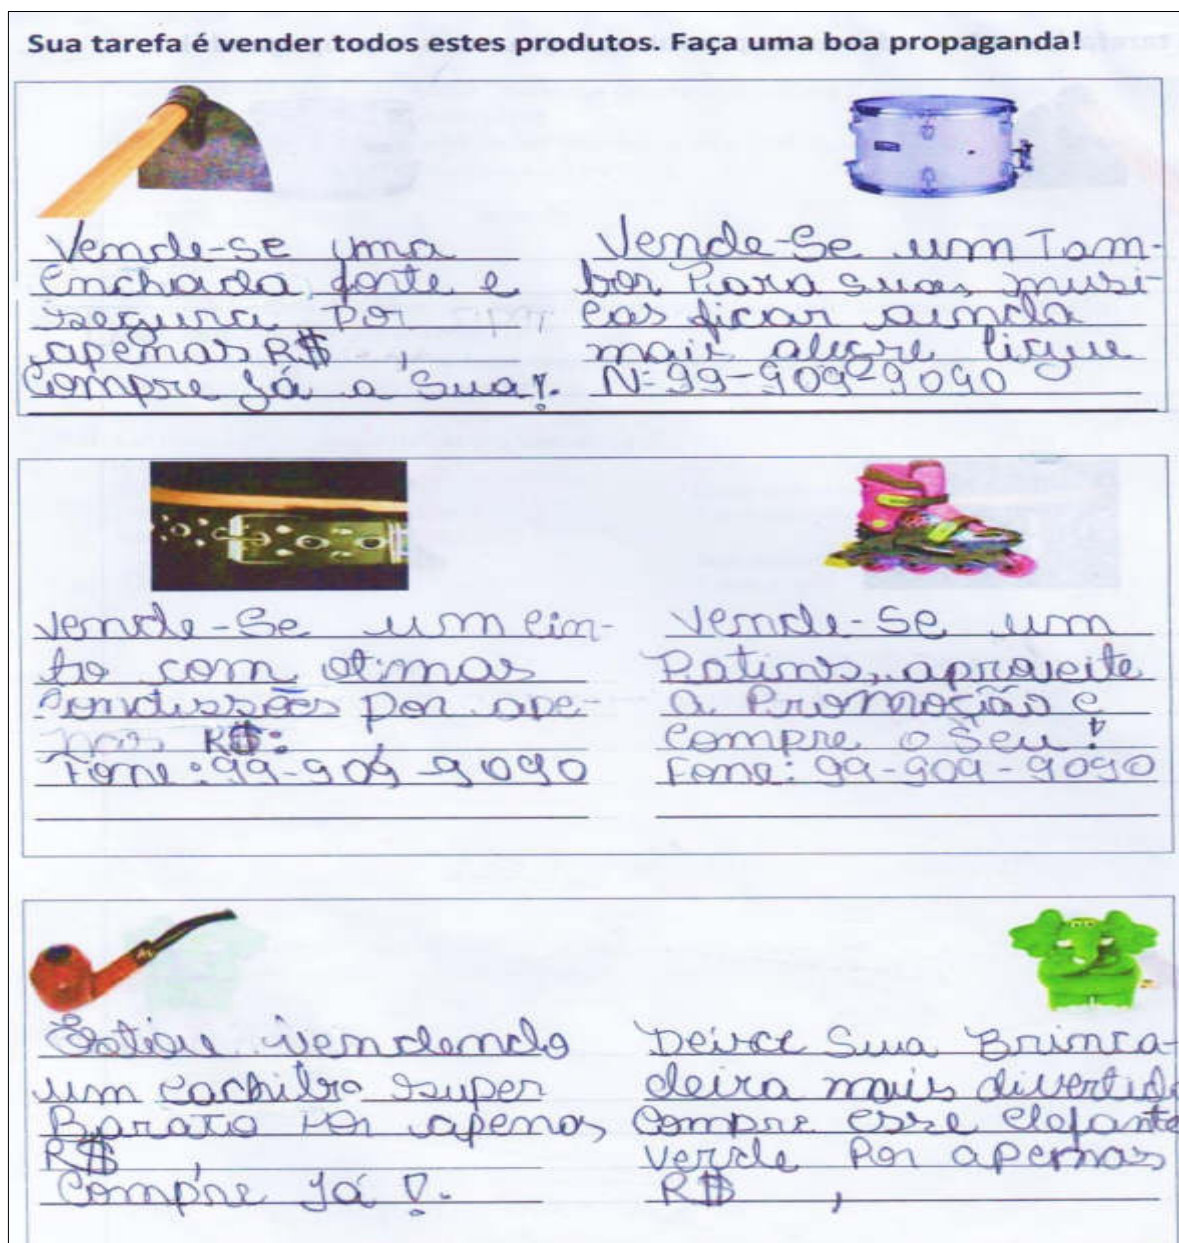 Sua tarefa é vender todos estes produtos. Faça uma boa propaganda!
Vende-se uma
enchada, forte e
segura por
apenas R$ ,
Compre Já a Sua!.
Vende-Se um Tam-
bor Para suas musi-
cas ficar ainda
mais alegre ligue
N= 99-909-9090
Vende-Se um cin-
to com otimas
Condissões por ape-
nas R$: ,
Fone: 99-909-9090
Vende-Se um
Patins, aproveite
a Promoção e
Compre o Seu!
Fone: 99-909-9090
Estou vendendo
um cachibo super
Barato Por apenas
R$ ,
Compre Já!.
Deixe Sua Brinca-
deira mais divertida
Compre esse elefante
verde Por apenas
R$ ,